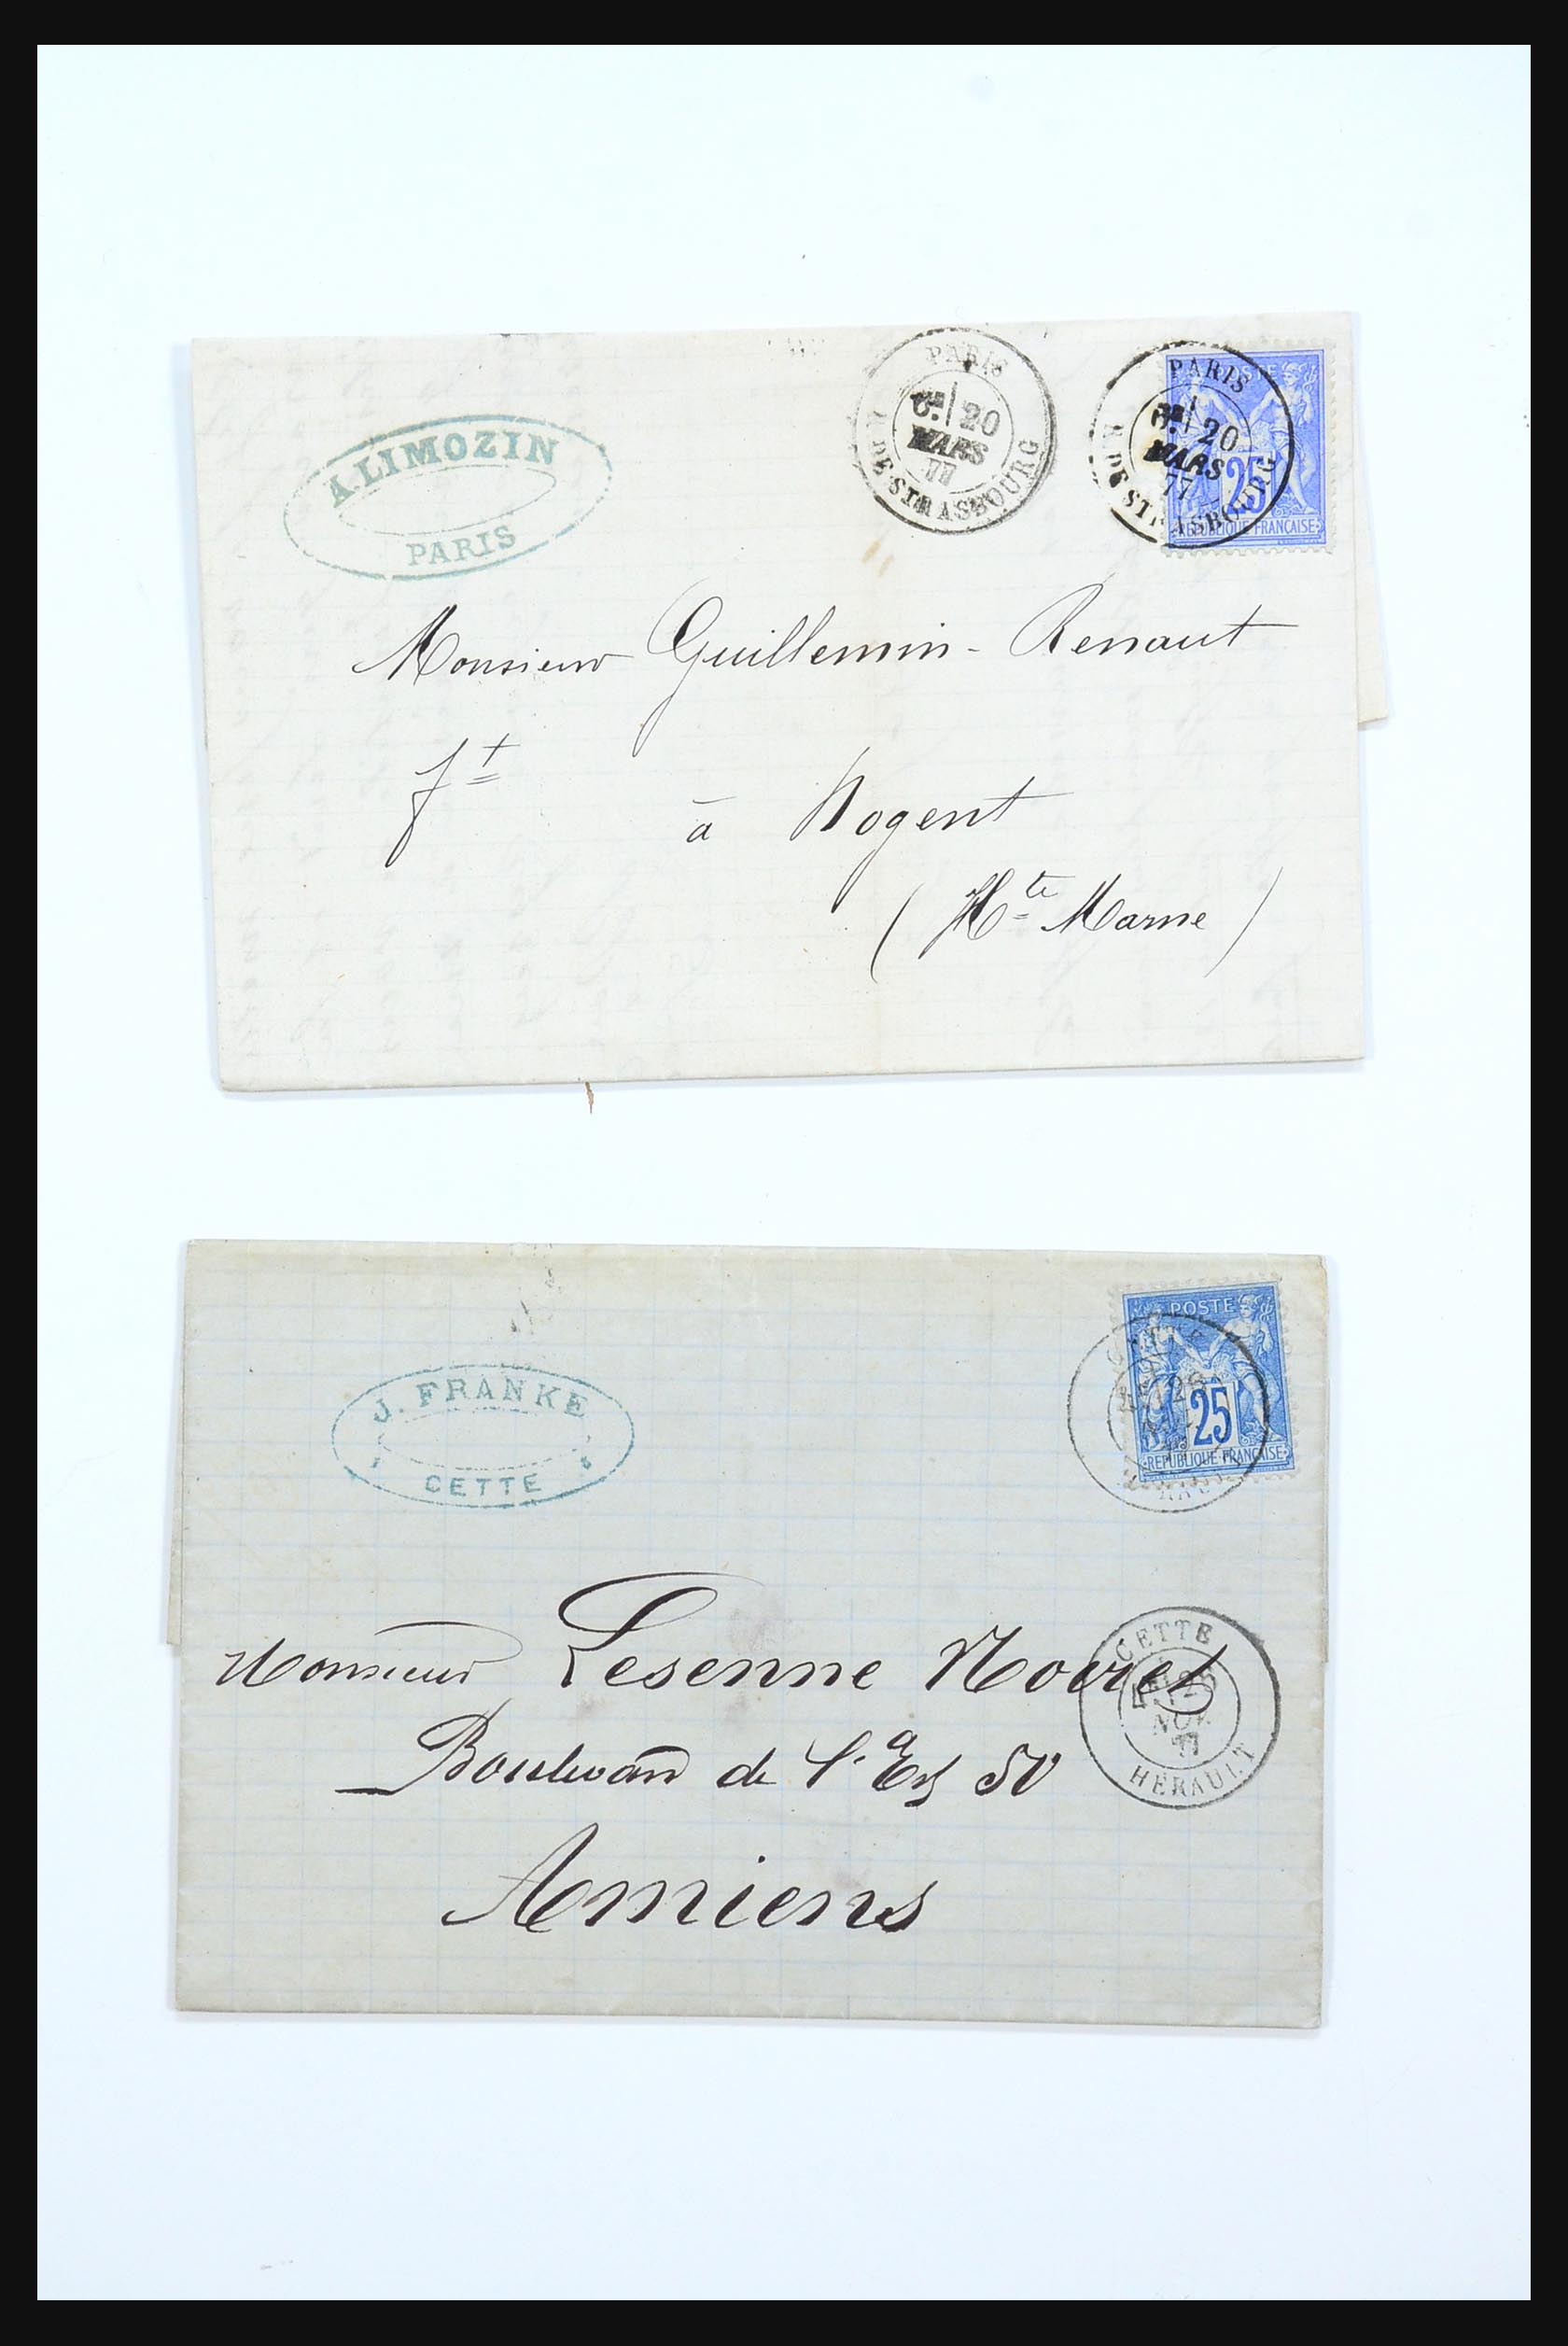 A. LIMOZIN
PARIS
PARIS
6E 20
MARS
77
R. DE STRASBOURG
POSTE
PARIS
6E 20
MARS
77
R. DE STRASBOURG
25
REPUBLIQUE FRANÇAISE
Monsieur Guillemin-Renaut
ft
à Nogent
(Hte Marne)
J. FRANKE
CETTE
POSTE
25
REPUBLIQUE FRANÇAISE
CETTE
NOV.
77
HERAULT
Monsieur Lesenne Noirel
Boulevard de l'Est 50
Amiens